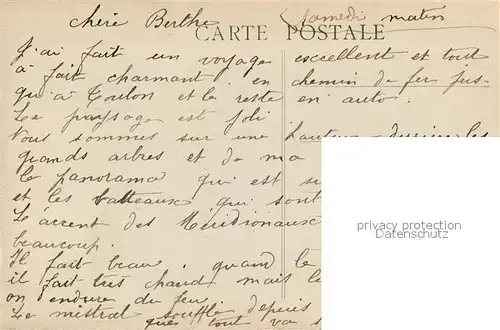 chère Berthe
Samedi matin
CARTE POSTALE
J'ai fait un voyage excellent et tout
à fait charmant. en chemin de fer jus-
qu'à Toulon et le reste en auto.
Le paysage est joli
Nous sommes sur une hauteur derrière les
grands arbres et de ma
le panorama qui est
et les batteaux qui sont
Le accent des Méridionaux
beaucoup.
Il fait beau. quand le
il fait très chaud mais le
on endure du feu
Le mistral souffle depuis
que tout va
privacy protection
Datenschutz